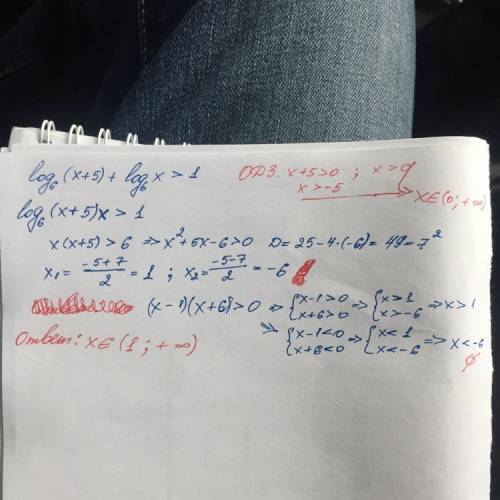 log₆(x+5) + log₆ x > 1 ОДЗ. x+5>0 ; x>0
x>-5 x∈(0; +∞)
log₆(x+5)x > 1
x(x+5) > 6 ⇒ x²+5x-6>0 D=25-4·(-6)=49=7²
x₁= (-5+7)/2 = 1 ; x₂= (-5-7)/2 = -6
(x-1)(x+6)>0 ⇒ {x-1>0 x+6>0 ⇒ {x>1 x>-6 ⇒ x>1
⇒ {x-1<0 x+6<0 ⇒ {x<1 x<-6 ⇒ x<-6
∅
Ответ: x∈(1; +∞)